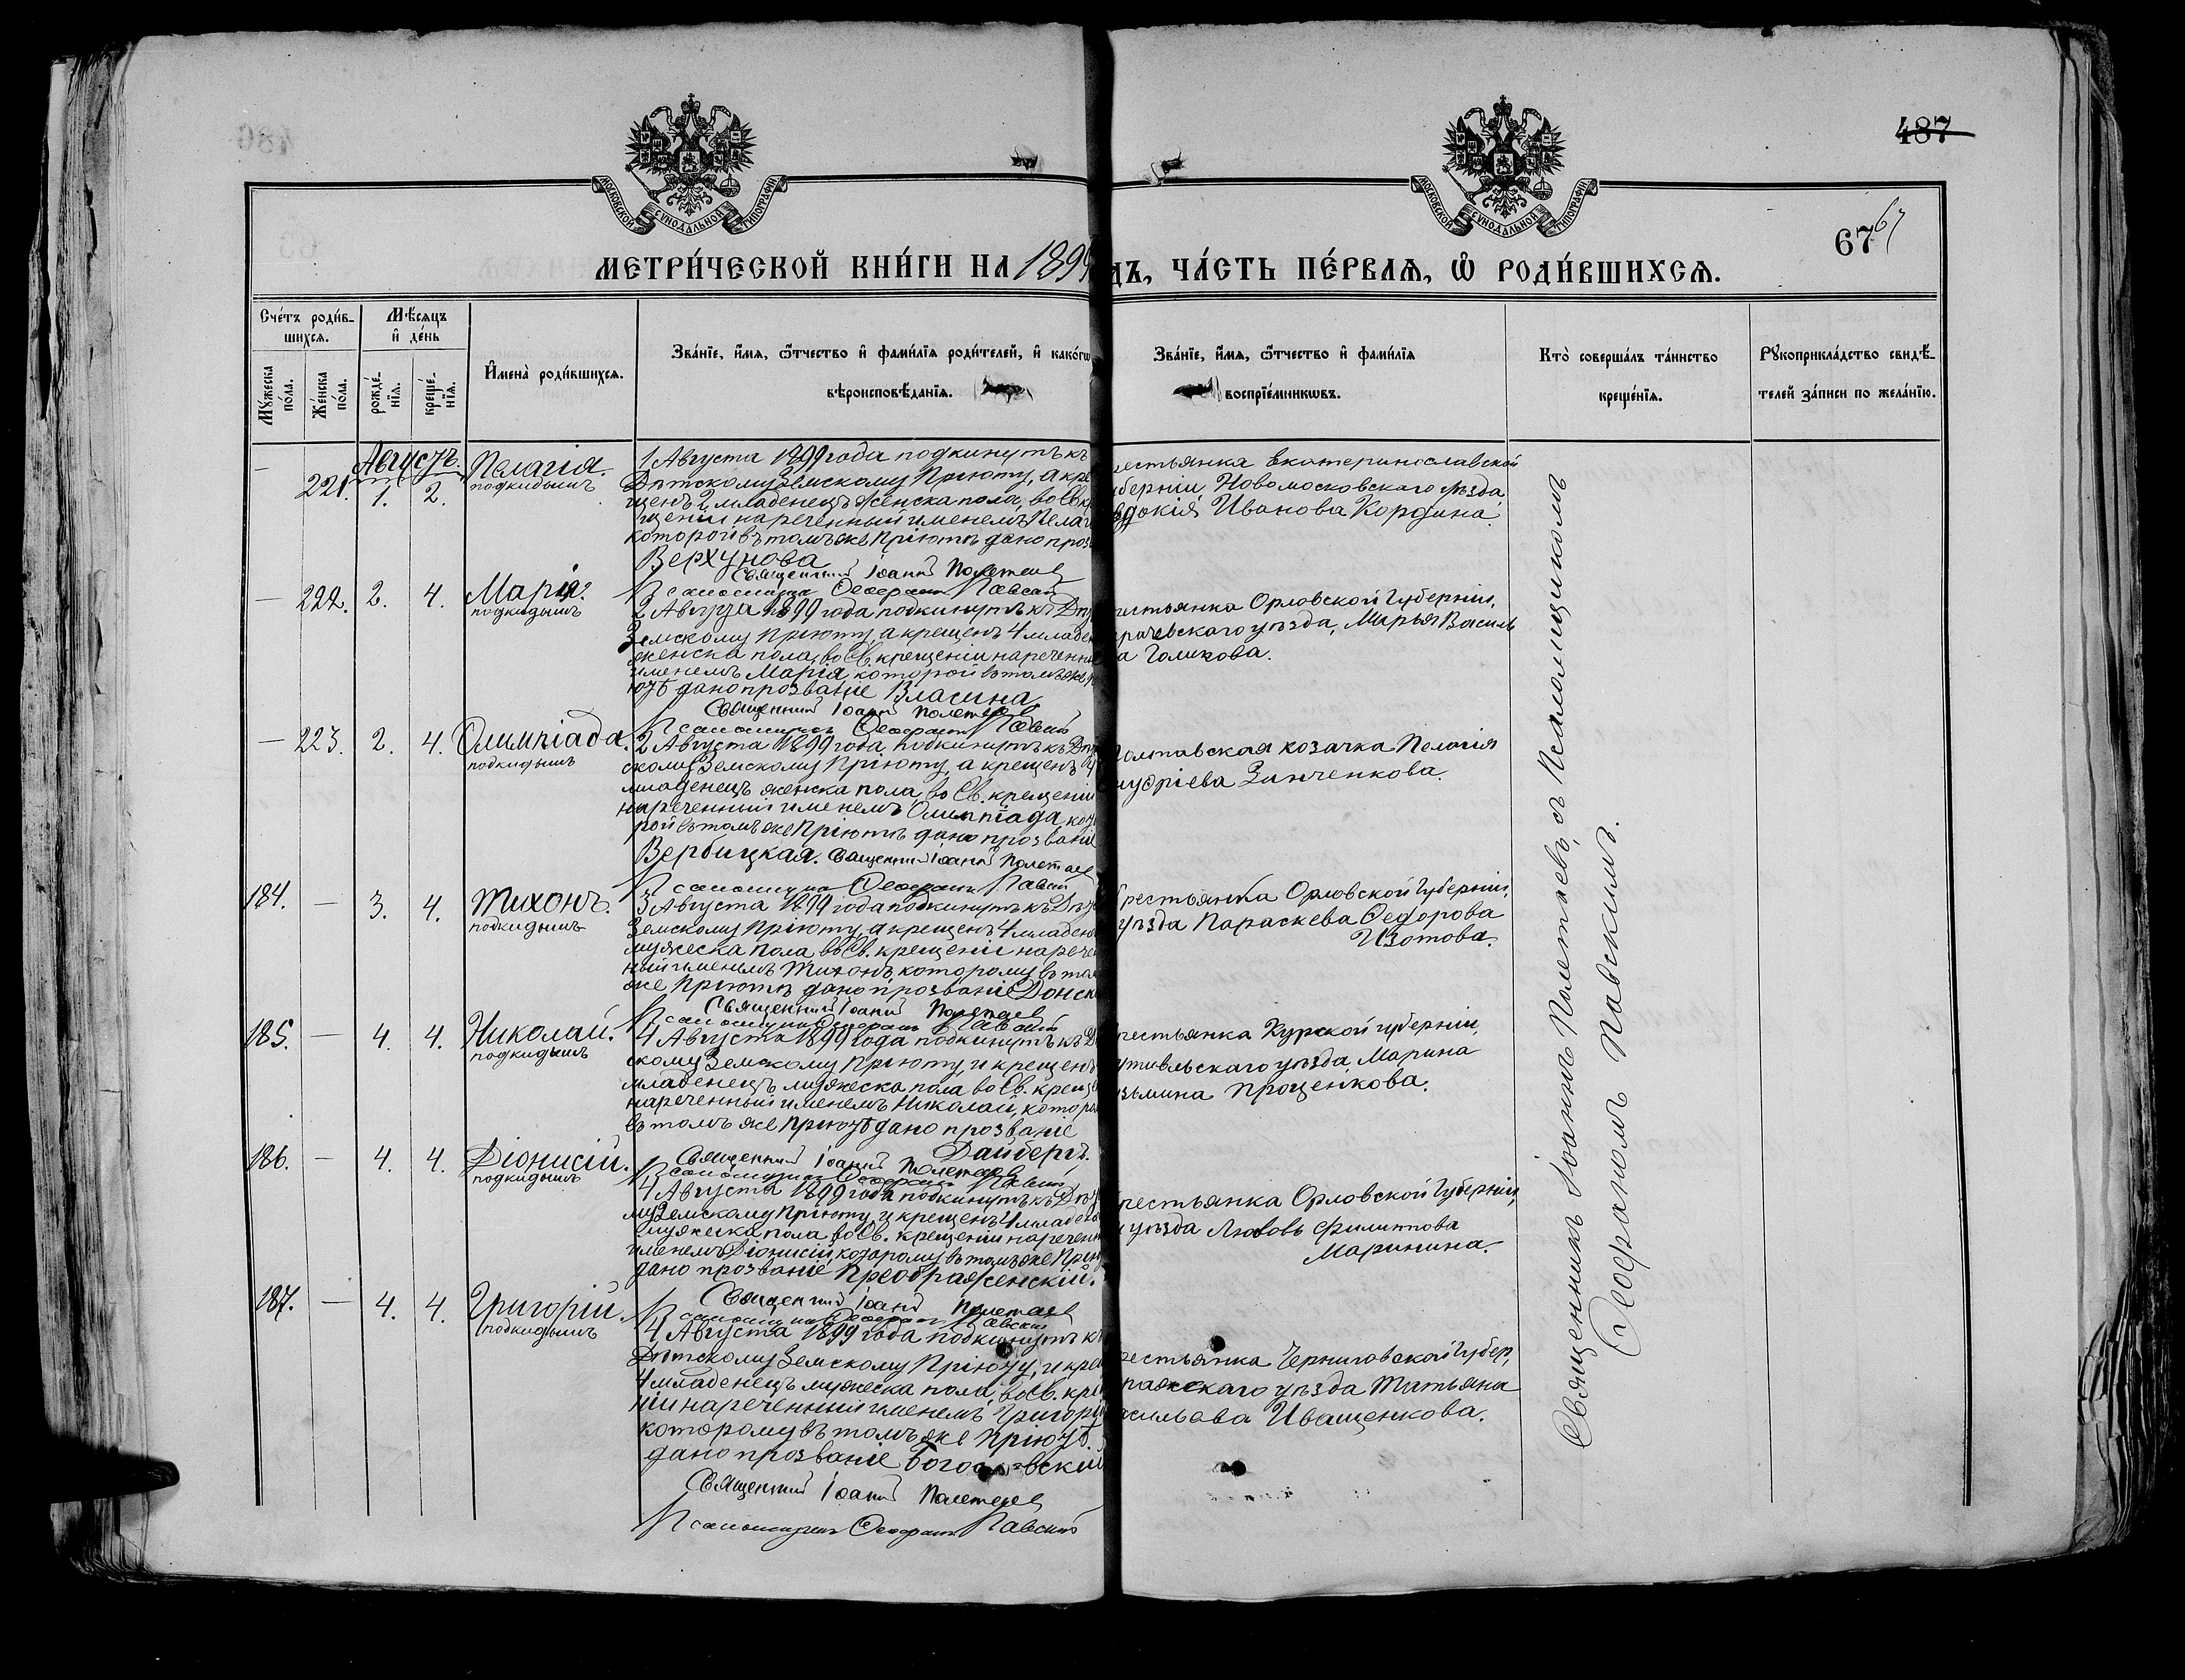 487
67 67
МОСКОВСКОЙ СѴНОДАЛЬНОЙ ТИПОГРАФІИ
МОСКОВСКОЙ СѴНОДАЛЬНОЙ ТИПОГРАФІИ
МЕТРИ́ЧЕСКОЙ КНИ́ГИ НА 1899
ДЪ, ЧА́СТЬ ПЕ́РВАѦ, Ѡ РОДИ́ВШИХСѦ.
Сче́тъ роди́в-
шихсѧ.
Мꙋжеска по́ла.
Же́нска по́ла.
Мѣ́сѧцъ
и҆ де́нь
рожде́-нїѧ.
креще́-нїѧ.
И҆мена̀ роди́вшихсѧ.
Зва́нїе, и҆́мѧ, ѻ҆́тчество и҆ фами́лїѧ роди́телей, и҆ како́гѡ
вѣроисповѣ́данїѧ.
Зва́нїе, и҆́мѧ, ѻ҆́тчество и҆ фами́лїѧ
воспрїе́мникѡвъ.
Кто̀ соверша́лъ та́инство
креще́нїѧ.
Рꙋкоприкла́дство свидѣ́-
телей за́писи по жела́нїю.
Августъ.
221. 1. 2.
Пелагія.
подкидышъ
1 Августа 1899 года подкинутъ къ
Дѣтскому Земскому Пріюту, а кре
щенъ 2 младенецъ женска пола, во Св. кр
щеніи нареченный именемъ Пелаг
которой въ томъ же Пріютѣ дано проз
Верхунова
Священникъ Іоаннъ Полетаев
Псаломщикъ Ѳеофанъ Павский
рестьянка Екатеринославской
уберніи, Новомосковскаго уѣзда
вдокія Иванова Кордина.
— 222. 2. 4.
Марія.
подкидышъ
2 Августа 1899 года подкинутъ къ Дѣт
Земскому Пріюту, а крещенъ 4 младен
женска пола, во Св. крещеніи нареченны
именемъ Марія, которой въ томъ же П
ютѣ дано прозваніе Власина
Священникъ Іоаннъ Полетаев
Псаломщикъ Ѳеофанъ Павский
рестьянка Орловской Губерніи,
рачевскаго уѣзда, Марья Василь
ва Голикова.
— 223. 2. 4.
Олимпіада.
подкидышъ
2 Августа 1899 года, подкинутъ къ Дѣт
скому Земскому Пріюту, а крещенъ 4
младенецъ женска пола, во Св. крещеніи
нареченный именемъ Олимпіада, кото
рой въ томъ же Пріютѣ дано прозваніе
Вербицкая. Священникъ Іоаннъ Полетаев
Псаломщикъ Ѳеофанъ Павский
олтавская козачка Пелагія
Зинченкова.
184. — 3. 4.
Тихонъ.
подкидышъ
3 Августа 1899 года подкинутъ къ Дѣт
Земскому Пріюту, а крещенъ 4 младен
мужеска пола, въ Св. крещеніи наречен
ный именемъ Тихонъ, которому въ том
же Пріютѣ дано прозваніе Донск
Священникъ Іоаннъ Полетаев
Псаломщикъ Ѳеофанъ Павский
рестьянка Орловской Губерніи,
уѣзда Параскева Ѳедорова
Изотова.
185. — 4. 4.
Николай.
подкидышъ
4 Августа 1899 года подкинутъ къ Д
скому Земскому Пріюту, и крещенъ
младенецъ мужеска пола во Св. крещ
нареченный именемъ Николай, котор
въ томъ же Пріютѣ дано прозваніе
Дайбергъ.
Священникъ Іоаннъ Полетаев
Псаломщикъ Ѳеофанъ Павский
рестьянка Курской губерніи,
утивльскаго уѣзда, Марина
зьмина Проценкова.
186. — 4. 4.
Діонисій.
подкидышъ
4 Августа 1899 года подкинутъ къ Дѣт
му Земскому Пріюту, и крещенъ 4 младен
мужеска пола, во Св. крещеніи наречен
именемъ Діонисій, которому въ томъ же Прію
дано прозваніе Преображенскій.
Священникъ Іоаннъ Полетаев
Псаломщикъ Ѳеофанъ Павский
рестьянка Орловской Губерніи,
уѣзда Любовь Филиппова
Маринина.
187. — 4. 4.
Григорій.
подкидышъ
4 Августа 1899 года подкинутъ к
Дѣтскому Земскому Пріюту, и кре
4 младенецъ мужеска пола, во Св. кре
ніи нареченный именемъ Григорі
которому въ томъ же Пріютѣ
дано прозваніе
Священникъ Іоаннъ Полетаев
Псаломщикъ Ѳеофанъ Павский
рестьянка Черниговской Губер,
ражскаго уѣзда Татьяна
асильева Иващенкова.
Священникъ Іоаннъ Полетаевъ, съ Псаломщикомъ
Ѳеофаномъ Павскимъ.